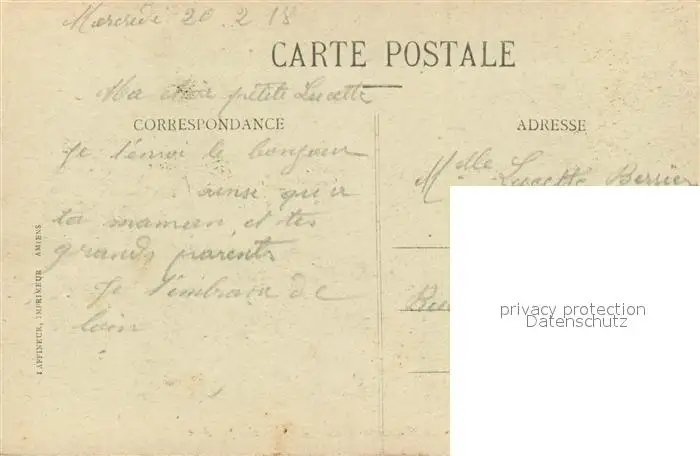 Mercredi 20.2.18
CARTE POSTALE
Ma chère petite Lucette
CORRESPONDANCE
ADRESSE
Je t'envoi le bonjour
ainsi qu'a
ta maman et tes
grands parents
Je t'embrasse de
loin
Mdlle Lucette Berrier
LAFFINEUR, IMPRIMEUR AMIENS
privacy protection
Datenschutz